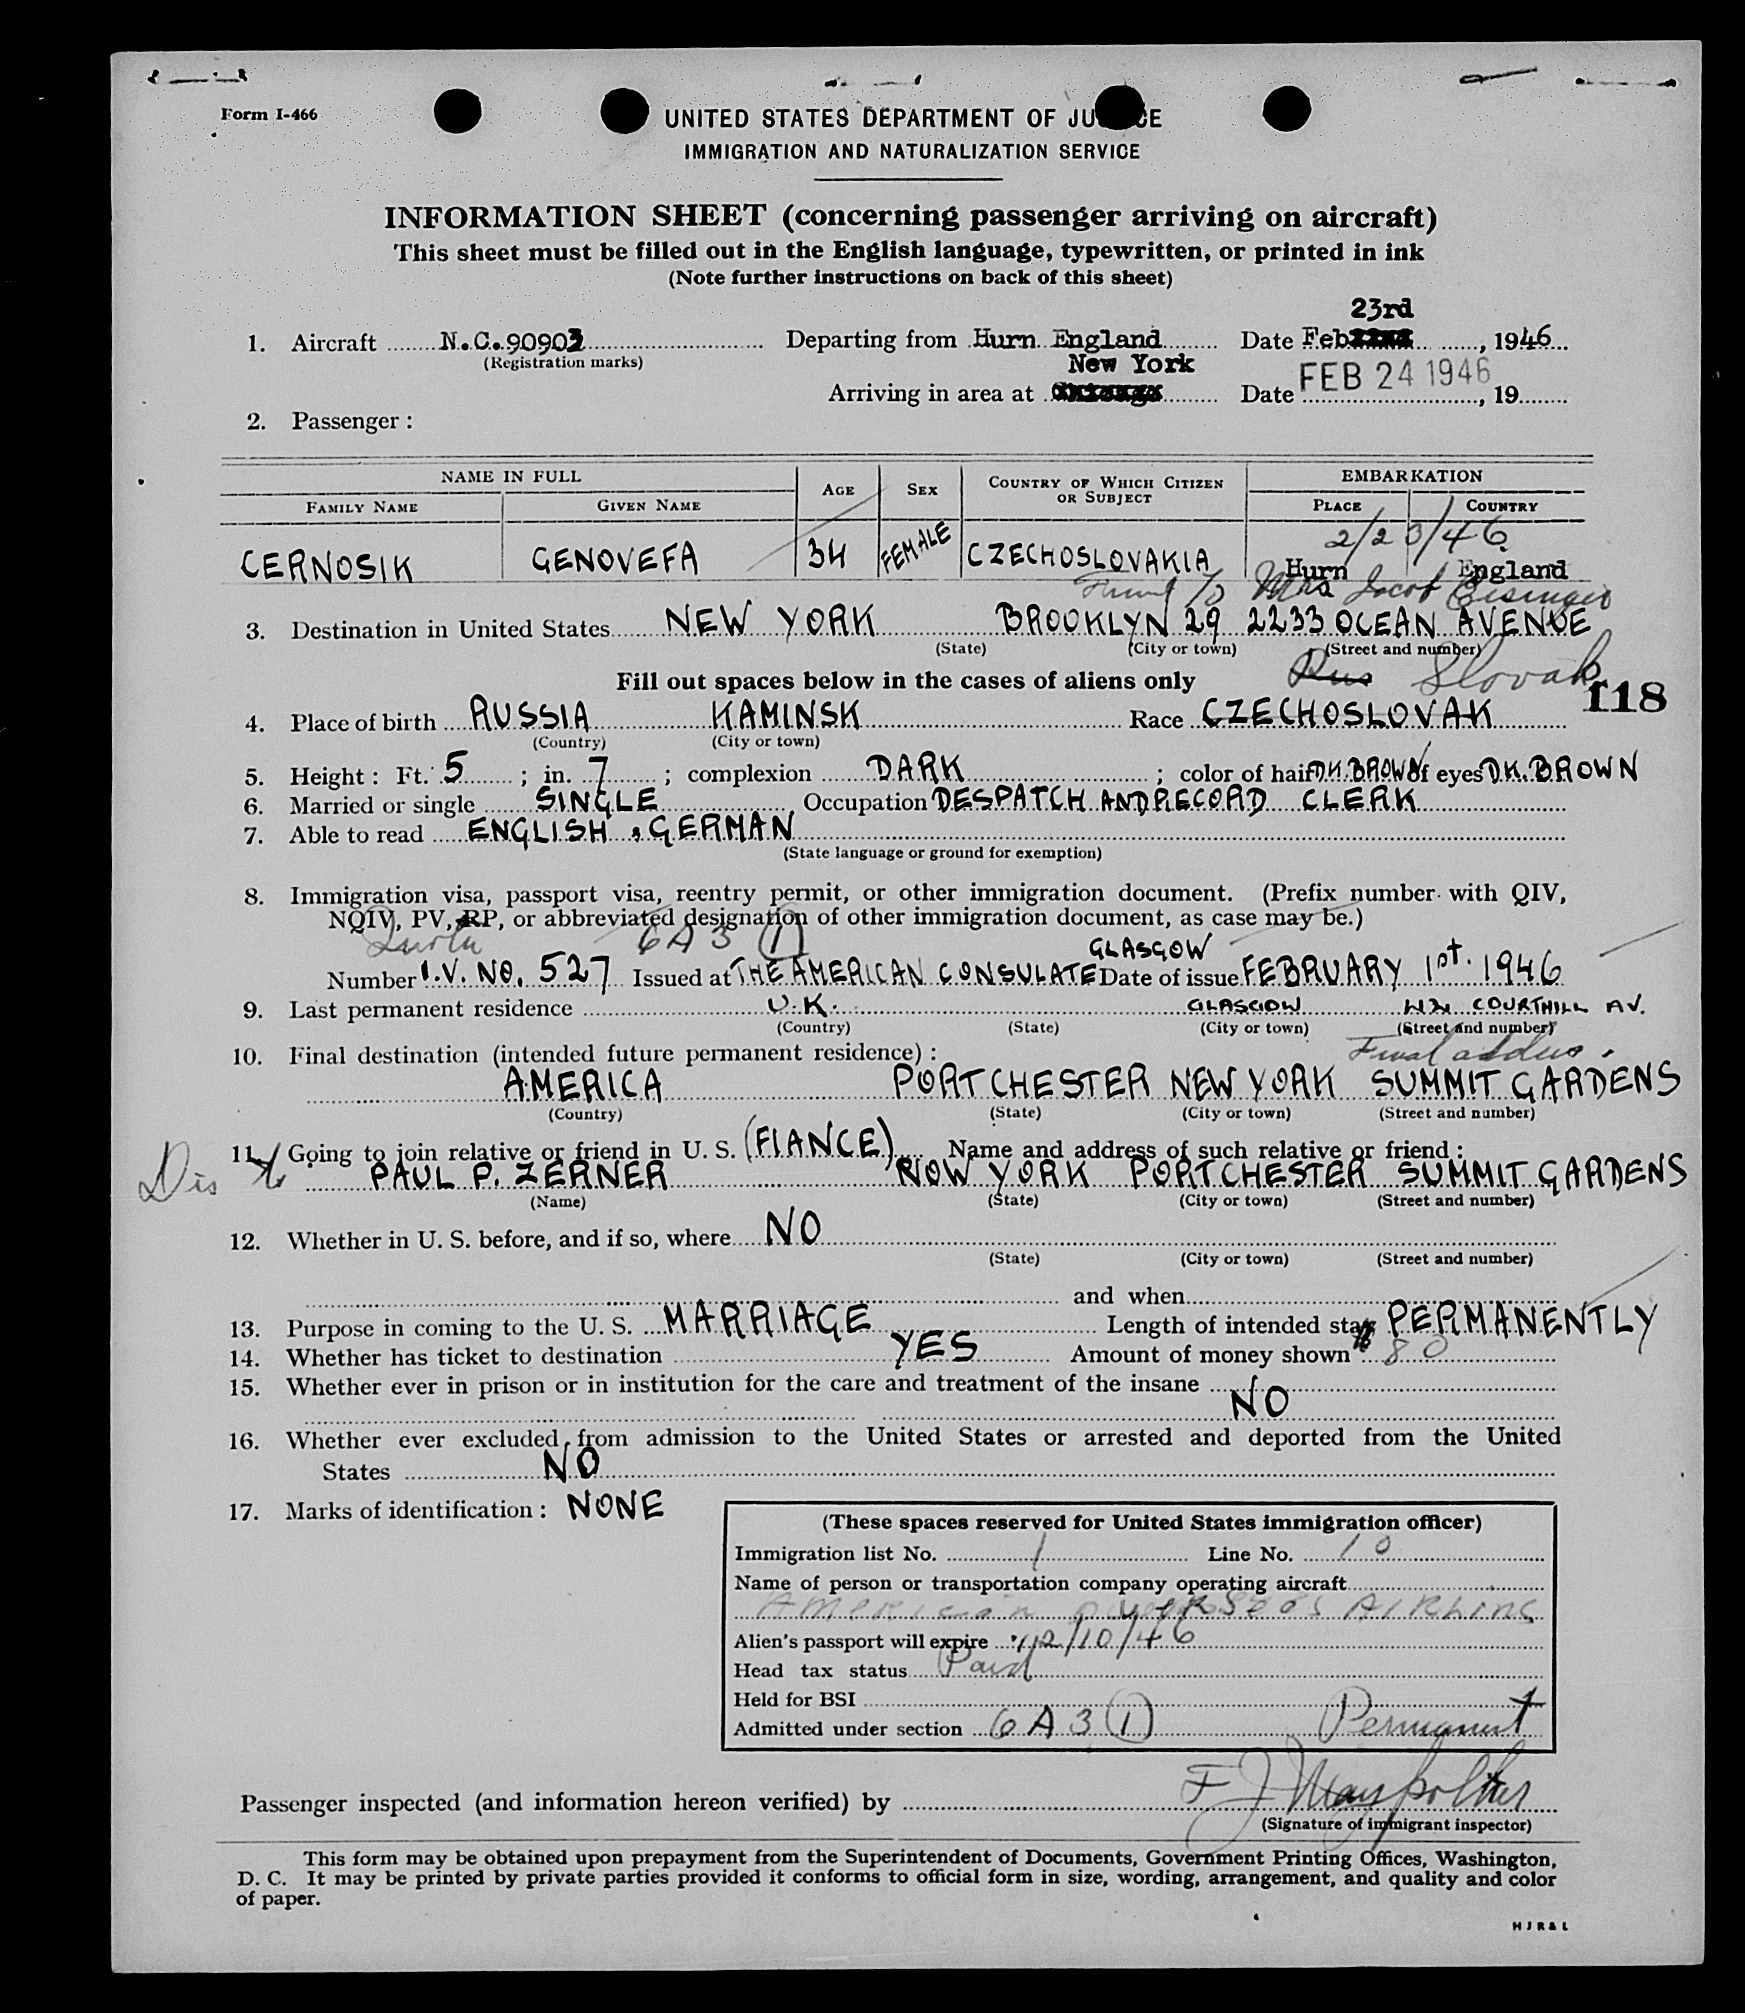 Form I-466
UNITED STATES DEPARTMENT OF JU CE
IMMIGRATION AND NATURALIZATION SERVICE
INFORMATION SHEET (concerning passenger arriving on aircraft)
This sheet must be filled out in the English language, typewritten, or printed in ink
(Note further instructions on back of this sheet)
23rd
1. Aircraft N.C.90903 Departing from Hurn England Date Feb , 1946
(Registration marks) New York
Arriving in area at Date FEB 24 1946, 19
2. Passenger :
NAME IN FULL AGE SEX COUNTRY OF WHICH CITIZEN OR SUBJECT EMBARKATION
FAMILY NAME GIVEN NAME PLACE COUNTRY
2/23/46
CERNOSIK GENOVEFA 34 FEMALE CZECHOSLOVAKIA Hurn England
to Mrs Jacob
3. Destination in United States NEW YORK BROOKLYN 29 2233 OCEAN AVENUE
(State) (City or town) (Street and number)
Fill out spaces below in the cases of aliens only Rus Slovak
118
4. Place of birth RUSSIA KAMINSK Race CZECHOSLOVAK
(Country) (City or town)
5. Height : Ft. 5 ; in. 7 ; complexion DARK ; color of hair DK. BROWN of eyes DK. BROWN
6. Married or single SINGLE Occupation DESPATCH AND RECORD CLERK
7. Able to read ENGLISH, GERMAN
(State language or ground for exemption)
8. Immigration visa, passport visa, reentry permit, or other immigration document. (Prefix number with QIV,
NQIV, PV, RP, or abbreviated designation of other immigration document, as case may be.)
6A3 (1) GLASGOW
Number I.V. NO. 527 Issued at THE AMERICAN CONSULATE Date of issue FEBRUARY 1st. 1946
9. Last permanent residence U.K. GLASGOW COURTHILL AV.
(Country) (State) (City or town) (Street and number)
10. Final destination (intended future permanent residence) : Final address.
AMERICA PORTCHESTER NEW YORK SUMMIT GARDENS
(Country) (State) (City or town) (Street and number)
11. Going to join relative or friend in U. S. (FIANCE) Name and address of such relative or friend :
Dis to PAUL P. ZERNER NOW YORK PORTCHESTER SUMMIT GARDENS
(Name) (State) (City or town) (Street and number)
12. Whether in U. S. before, and if so, where NO
(State) (City or town) (Street and number)
and when
13. Purpose in coming to the U. S. MARRIAGE Length of intended stay PERMANENTLY
14. Whether has ticket to destination YES Amount of money shown 80
15. Whether ever in prison or in institution for the care and treatment of the insane NO
16. Whether ever excluded from admission to the United States or arrested and deported from the United
States NO
17. Marks of identification : NONE
(These spaces reserved for United States immigration officer)
Immigration list No. 1 Line No. 10
Name of person or transportation company operating aircraft
American Overseas Airlines
Alien's passport will expire 12/10/46
Head tax status Paid
Held for BSI
Admitted under section 6A3 (1) Permanent
Passenger inspected (and information hereon verified) by F J
(Signature of immigrant inspector)
This form may be obtained upon prepayment from the Superintendent of Documents, Government Printing Offices, Washington,
D. C. It may be printed by private parties provided it conforms to official form in size, wording, arrangement, and quality and color
of paper.
H J R & L